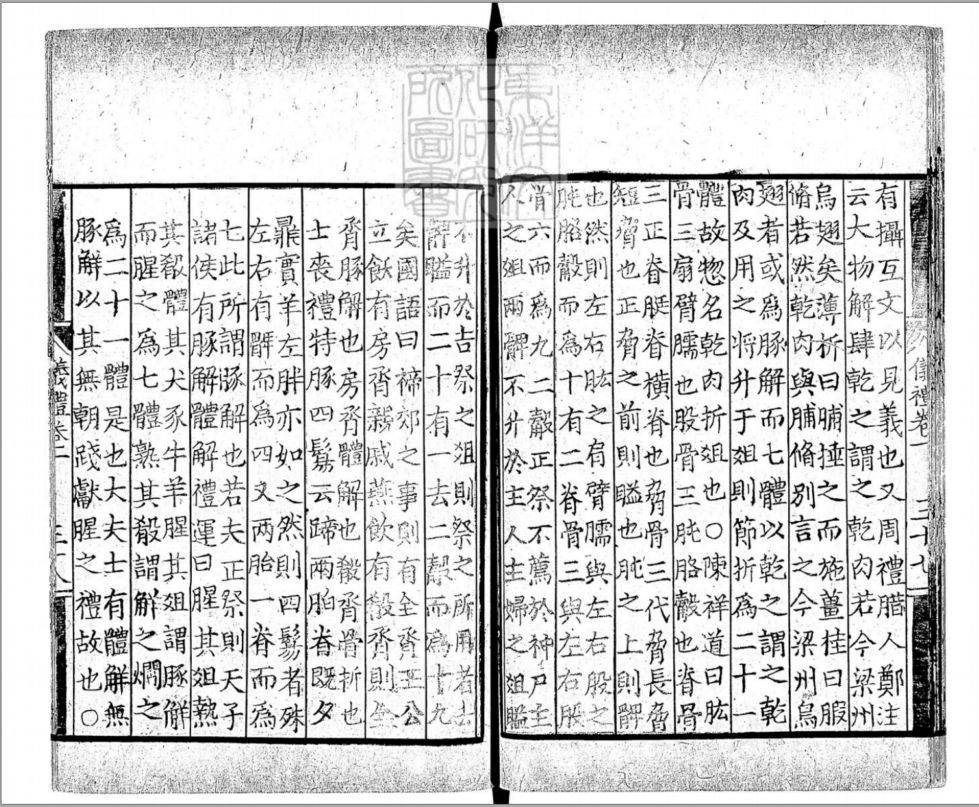 有攝互文以見義也又周禮腊人鄭注
云大物解肆乾之謂之乾肉若今梁州
烏翅矣薄折曰脯捶之而施薑桂曰腶
脩若然乾肉與脯脩別言之今梁州烏
翅者或為豚解而七體以乾之謂之乾
肉及用之將升于俎則節折為二十一
體故惣名乾肉折俎也〇陳祥道曰肱
骨三扇臂臑也股骨三肫胳觳也脊骨
三正脊脡脊橫脊也脅骨三代脅長脅
短脅也正脅之前則膉也肫之上則髀
也然則左右肱之肩臂臑與左右股之
肫胳觳而為十有二脊骨三與左右脅
骨六而為九二觳正祭不薦於神尸主
人之俎兩髀不升於主人主婦之俎膉
不升於吉祭之俎則祭之所用者去
髀膉而二十有一去二觳而為十九
矣國語曰禘郊之事則有全烝王公
立飫有房烝親戚燕飲有殽烝則全
烝豚解也房烝體解也殽烝骨折也
士喪禮特豚四鬄云蹄兩胉脊既夕
鼎實羊左胖亦如之然則四鬄者殊
左右肩髀而為四又兩胎一脊而為
七此所謂豚解也若夫正祭則天子
諸侯有豚解體解禮運曰腥其俎熟
其殽體其犬豕牛羊腥其俎謂豚解
而腥之為七體熟其殽謂解之爓之
為二十一體是也大夫士有體解無
豚解以其無朝踐獻腥之禮故也〇
儀禮卷二
三十七
儀禮卷二
三十八